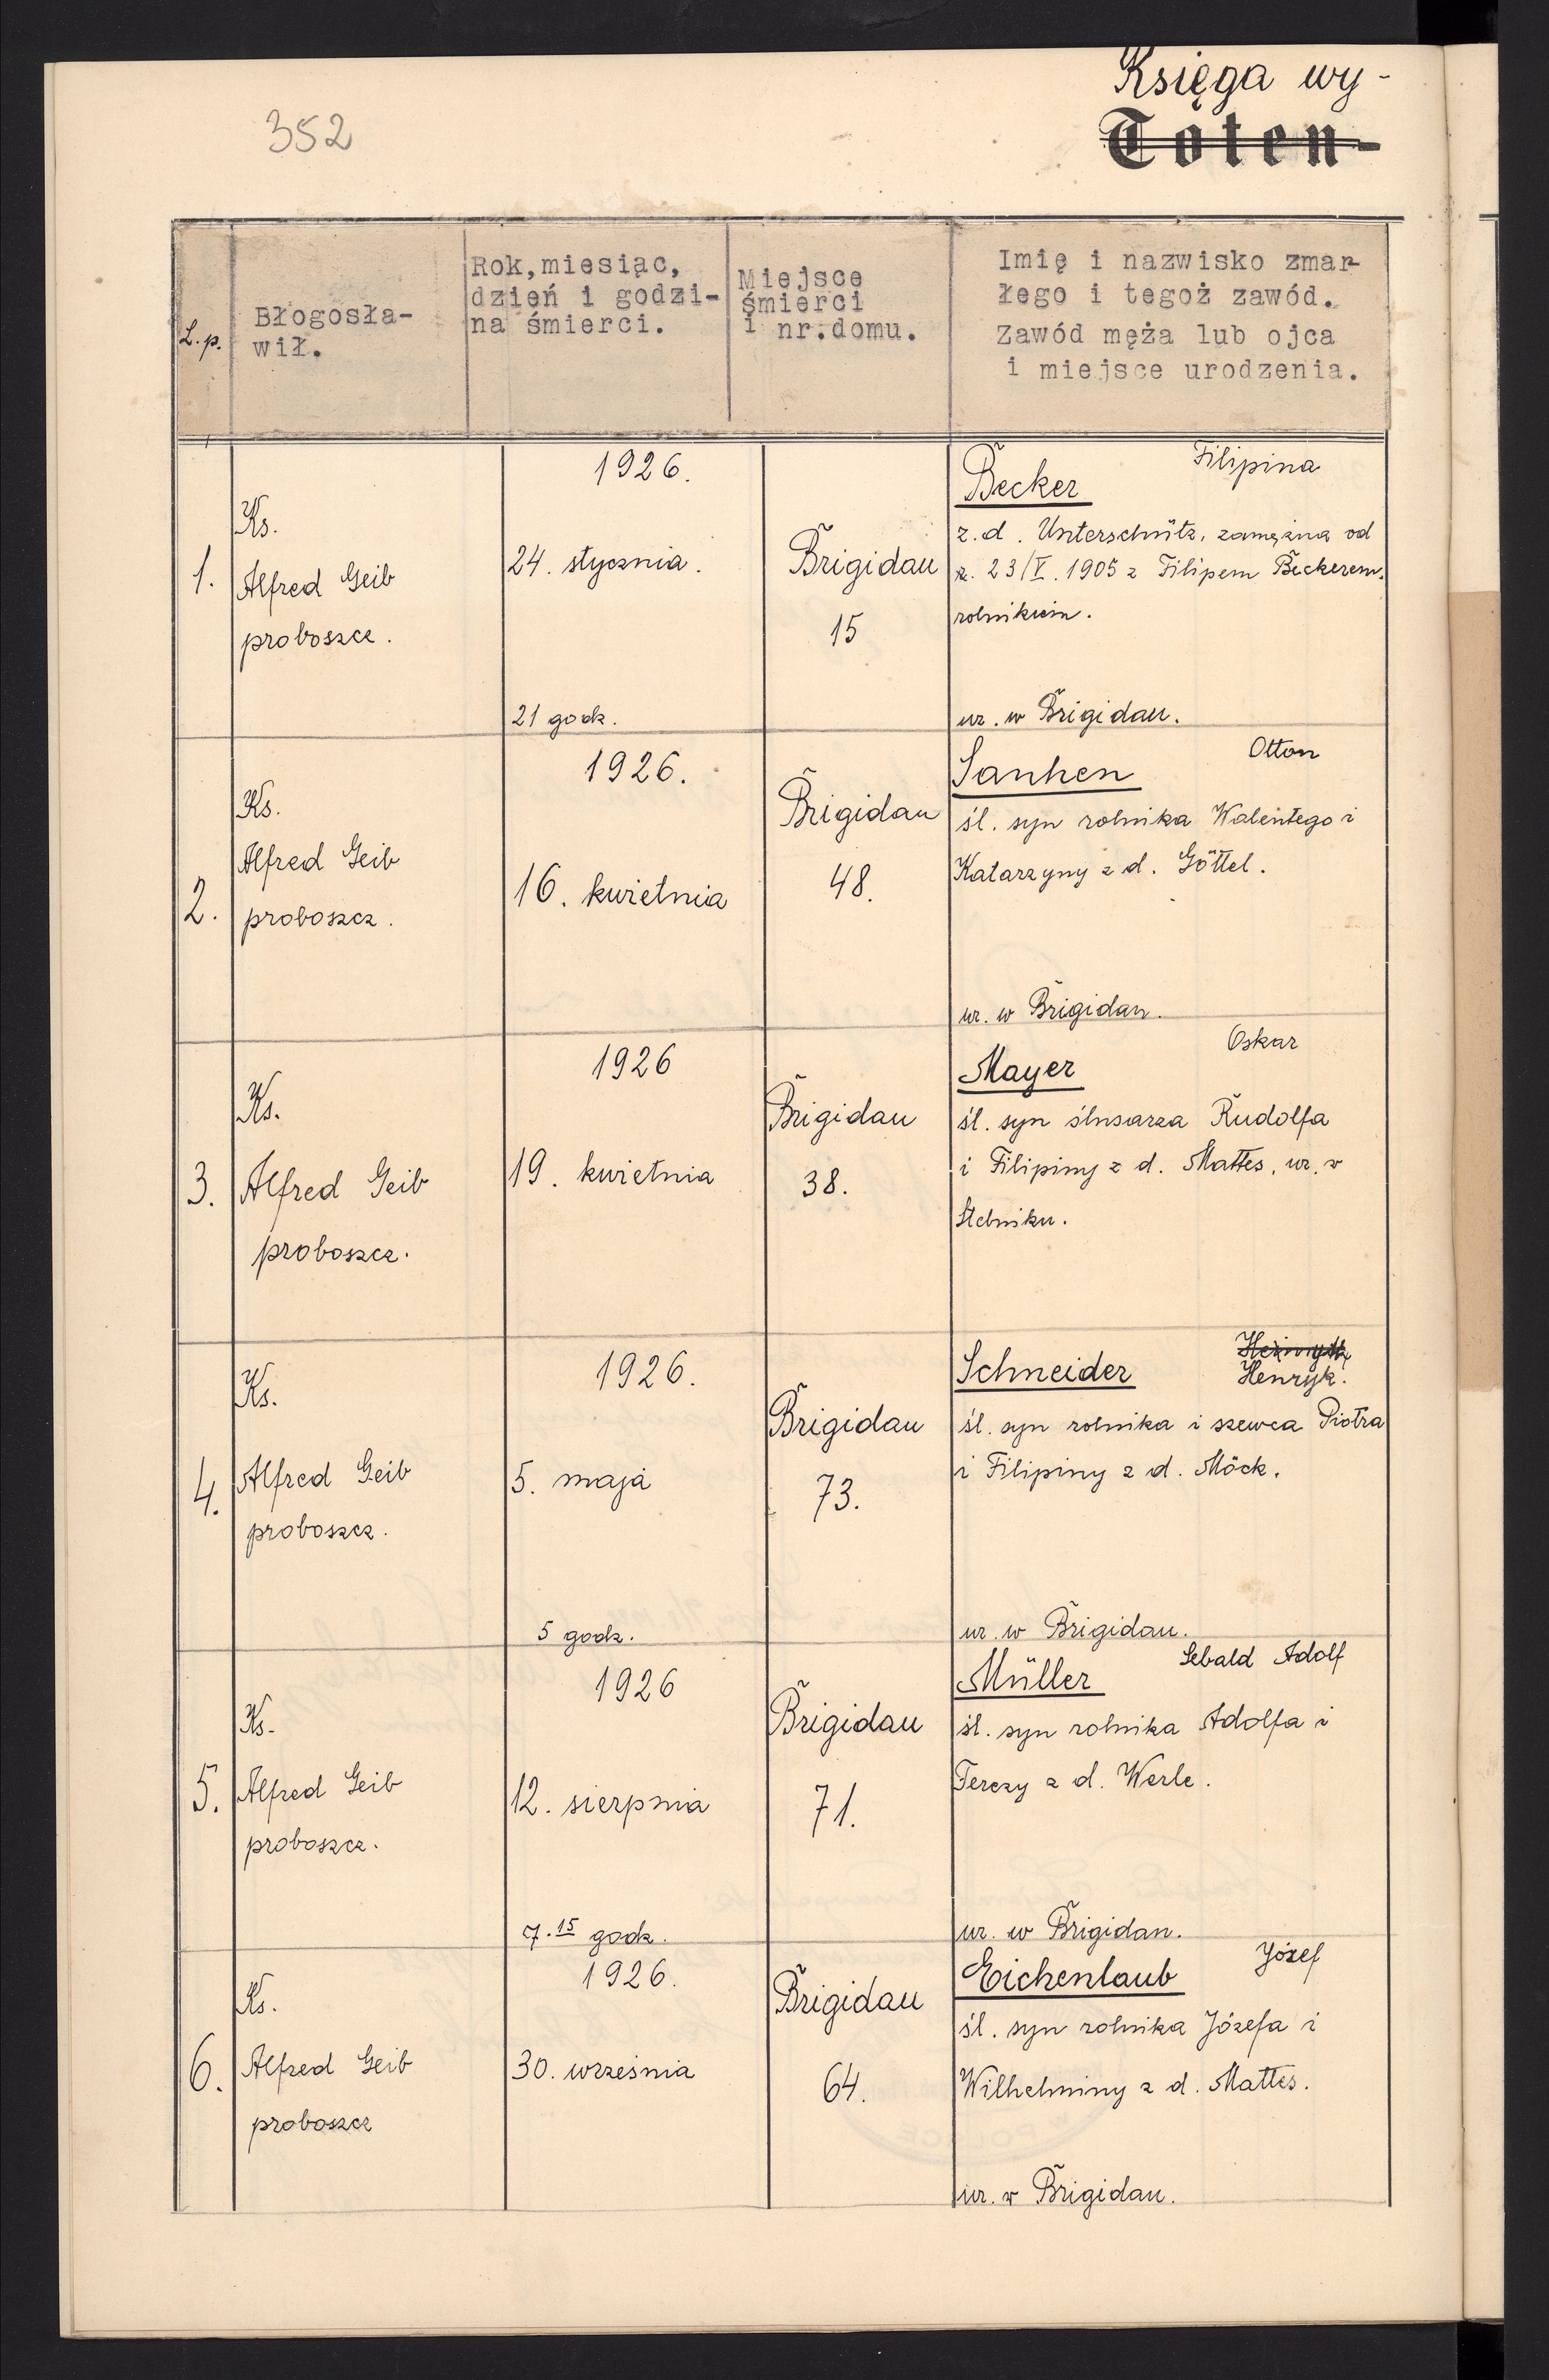 Księga wy-
352
Toten-
L.p.
Błogosła-
wił.
Rok, miesiąc,
dzień i godzi-
na śmierci.
Miejsce
śmierci
i nr. domu.
Imię i nazwisko zmar-
łego i tegoż zawód.
Zawód męża lub ojca
i miejsce urodzenia.
1.
Ks.
Alfred Geib
proboszcz.
1926.
24. stycznia.
21 godz.
Brigidau
15
Filipina
Becker
z. d. Unterschütz, zamężna od
r. 23/V. 1905 z Filipem Beckerem.
rolnikiem.
ur. w Brigidau.
2.
Ks.
Alfred Geib
proboszcz.
1926.
16. kwietnia
Brigidau
48.
Otton
Sanhen
śl. syn rolnika Walentego i
Katarzyny z d. Göttel.
ur. w Brigidau.
3.
Ks.
Alfred Geib
proboszcz.
1926
19. kwietnia
Brigidau
38.
Oskar
Mayer
śl. syn ślusarza Rudolfa
i Filipiny z d. Mattes, ur. w
Stebniku.
4.
Ks.
Alfred Geib
proboszcz.
1926.
5. maja
5 godz.
Brigidau
73.
Schneider
Henryk.
śl. syn rolnika i szewca Piotra
i Filipiny z d. Möck.
ur. w Brigidau.
5.
Ks.
Alfred Geib
proboszcz.
1926
12. sierpnia
7.15 godz.
Brigidau
71.
Sebald Adolf
Müller
śl. syn rolnika Adolfa i
Terezy z d. Werle.
ur. w Brigidau.
6.
Ks.
Alfred Geib
proboszcz
1926.
30. września
Brigidau
64.
Józef
Eichenlaub
śl. syn rolnika Józefa i
Wilhelminy z d. Mattes.
ur. w Brigidau.